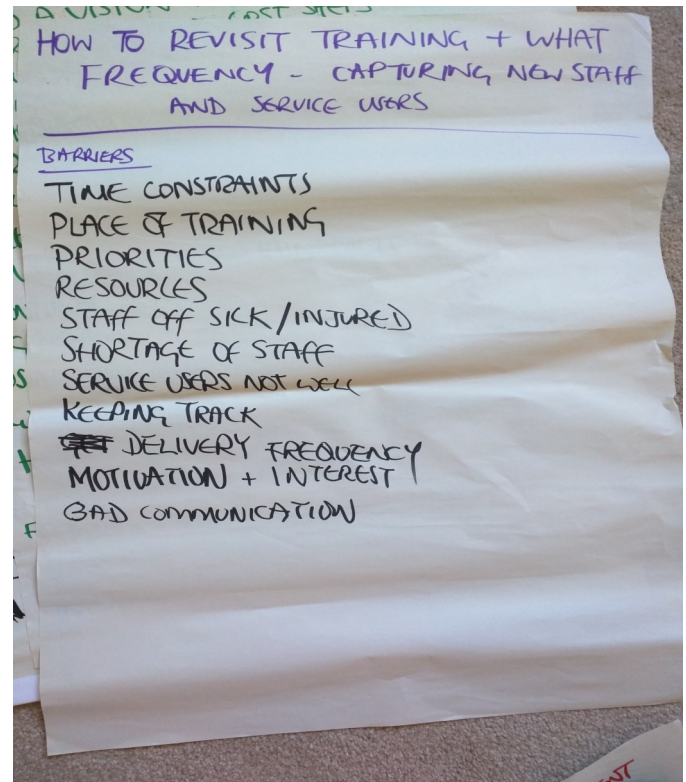 A VISION
HOW TO REVISIT TRAINING + WHAT
FREQUENCY - CAPTURING NEW STAFF
AND SERVICE USERS
BARRIERS
TIME CONSTRAINTS
PLACE OF TRAINING
PRIORITIES
RESOURCES
STAFF OFF SICK/INJURED
SHORTAGE OF STAFF
SERVICE USERS NOT WELL
KEEPING TRACK
DELIVERY FREQUENCY
MOTIVATION + INTEREST
BAD COMMUNICATION